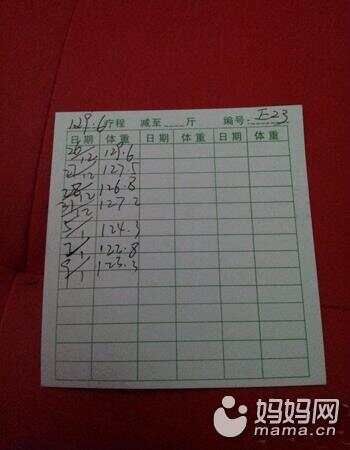 129.6 疗程 减至____斤 编号: E23
日期 体重 日期 体重 日期 体重
26/12 129.6
27/12 127.5
28/12 126.8
31/12 127.2
5/1 124.3
7/1 122.8
9/1 123.3
妈妈网
mama.cn